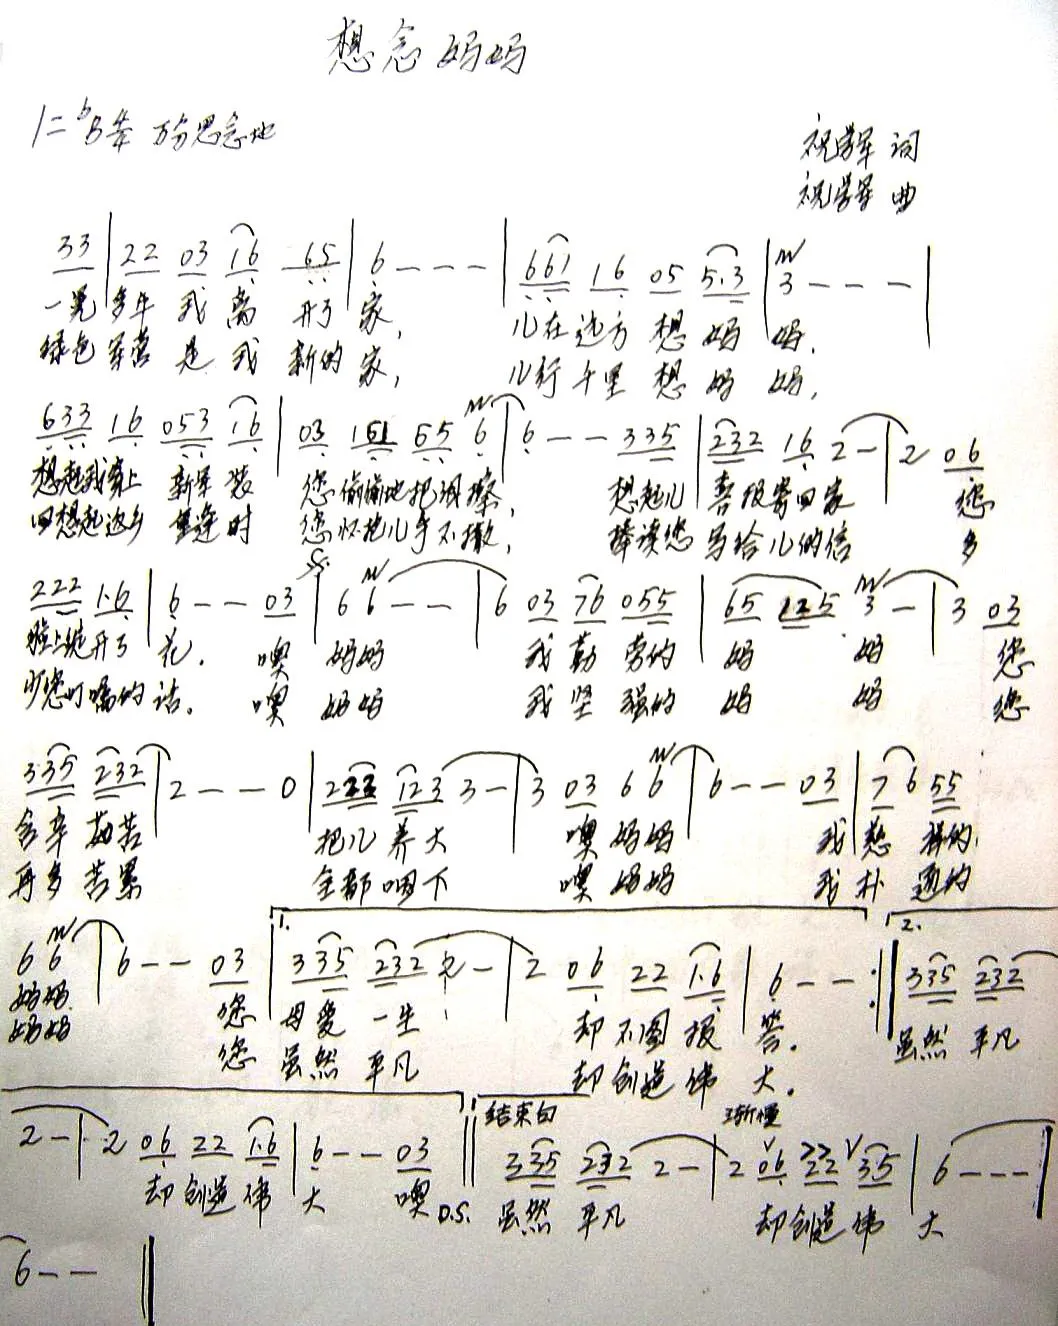 想念妈妈
1=♭B 4/4 万分思念地
祝学军 词
祝学军 曲
33 | 22 03 16 65 | 6 - - - | 661 16 05 5.3 | 3 - - - |
一晃 多年 我 离 开了 家, 儿在远方 想 妈 妈.
绿色 军营 是 我 新的 家, 儿行千里 想 妈 妈,
633 16 053 16 | 03 161 65 6 | 6 - - 335 | 232 16 2 - | 2 06
想起我穿上 新军 装 您 偷偷地把泪擦, 想起儿 喜报寄回家 您
回想起返乡 重逢时 您 怀抱儿手不撒, 捧读您 写给儿的信 多
222 1.6 | 6 - - 03 | 6 6 - - | 6 03 76 055 | 65 125 3 - | 3 03
脸上绽开了 花. 噢 妈妈 我 勤 劳的 妈 妈 您
少您叮嘱的 话. 噢 妈妈 我 坚 强的 妈 妈 您
335 232 | 2 - - 0 | 223 123 3 - | 3 03 6 6 | 6 - - 03 | 7 6 55
含辛 茹苦 把儿 养大 噢 妈妈 我 慈 祥的
再多 苦累 全都 咽下 噢 妈妈 我 朴 通的
1. 2.
6 6 | 6 - - 03 | 335 232 2 - | 2 06 22 1.6 | 6 - - :‖ 335 232
妈妈 您 母爱 一生 却 不图 报 答. 虽然 平凡
妈妈 您 虽然 平凡 却 创造 伟 大.
结束句 渐慢
2 - | 2 06 22 1.6 | 6 - - 03 ‖ 335 232 2 - | 2 06 22 35 | 6 - - - |
却 创造 伟 大 噢 D.S. 虽然 平凡 却 创造 伟 大
6 - - ‖